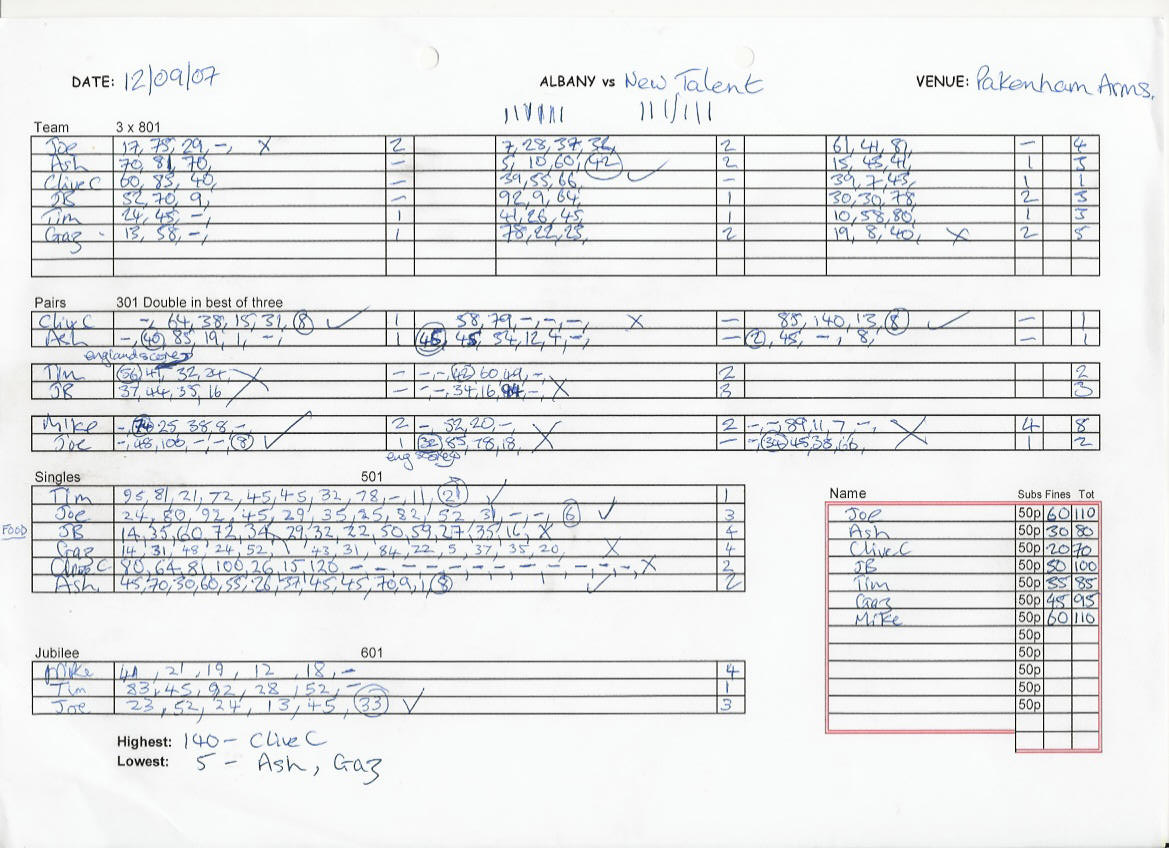 DATE: 12/09/07 ALBANY vs New Talent VENUE: Pakenham Arms.
Team 3 x 801
Joe 17, 75, 29, -, X 2 7, 28, 37, 36, 2 61, 41, 81, - 4
Ash 70, 81, 70, - 5, 10, 60, 42 ✓ 2 15, 45, 41, 1 3
Clive C 60, 85, 40, - 39, 55, 66, - 39, 7, 45, 1 1
JB 52, 70, 9, - 92, 9, 64, 1 30, 30, 78, 2 3
Tim 24, 45, -, 1 41, 26, 45, 1 10, 58, 80, 1 3
Gaz 13, 58, -, 1 78, 22, 23, 2 19, 8, 40, X 2 5
Pairs 301 Double in best of three
Clive C -, 64, 38, 15, 31, 8 ✓ 1 58, 79, -, -, -, X - 85, 140, 13, 8 ✓ - 1
Ash -, 40, 85, 19, 1, -, 1 45, 45, 34, 12, 4, -, - 2, 45, -, 8, - 1
england scores
Tim 56, 41, 32, 24, X - -, -, 42, 60, 49, -, 2 2
JB 37, 44, 35, 16 - -, -, 34, 16, -, X 3 3
Mike -, 25, 38, 8, -, ✓ 2 -, 52, 20, -, 2 -, -, 89, 11, 7, -, X 4 8
Joe -, 48, 100, -, 8 1 32, 85, 78, 18, X - -, 34, 45, 38, 66, 1 2
eng scores
Singles 501
Tim 95, 81, 21, 72, 45, 45, 32, 78, -, 11, 21 ✓ 1
Joe 24, 50, 92, 45, 29, 35, 25, 82, 52, 31, -, -, 6 ✓ 3
FOOD JB 14, 35, 60, 72, 34, 29, 32, 22, 50, 59, 27, 35, 16, X 4
Gaz 14, 31, 48, 24, 52, 43, 31, 84, 22, 5, 37, 35, 20, X 4
Clive C 80, 64, 81, 100, 26, 15, 120 - - - - - - - - - - - X 2
Ash 45, 70, 30, 60, 55, 26, 57, 45, 45, 70, 9, 1, 8 ✓ 2
Name Subs Fines Tot
Joe 50p 60 110
Ash 50p 30 80
Clive C 50p 20 70
JB 50p 50 100
Tim 50p 35 85
Gaz 50p 45 95
Mike 50p 60 110
50p
50p
50p
50p
50p
Jubilee 601
Mike 41, 21, 19, 12, 18, - 4
Tim 83, 45, 92, 28, 52, - 1
Joe 23, 52, 24, 13, 45, 33 ✓ 3
Highest: 140 - Clive C
Lowest: 5 - Ash, Gaz